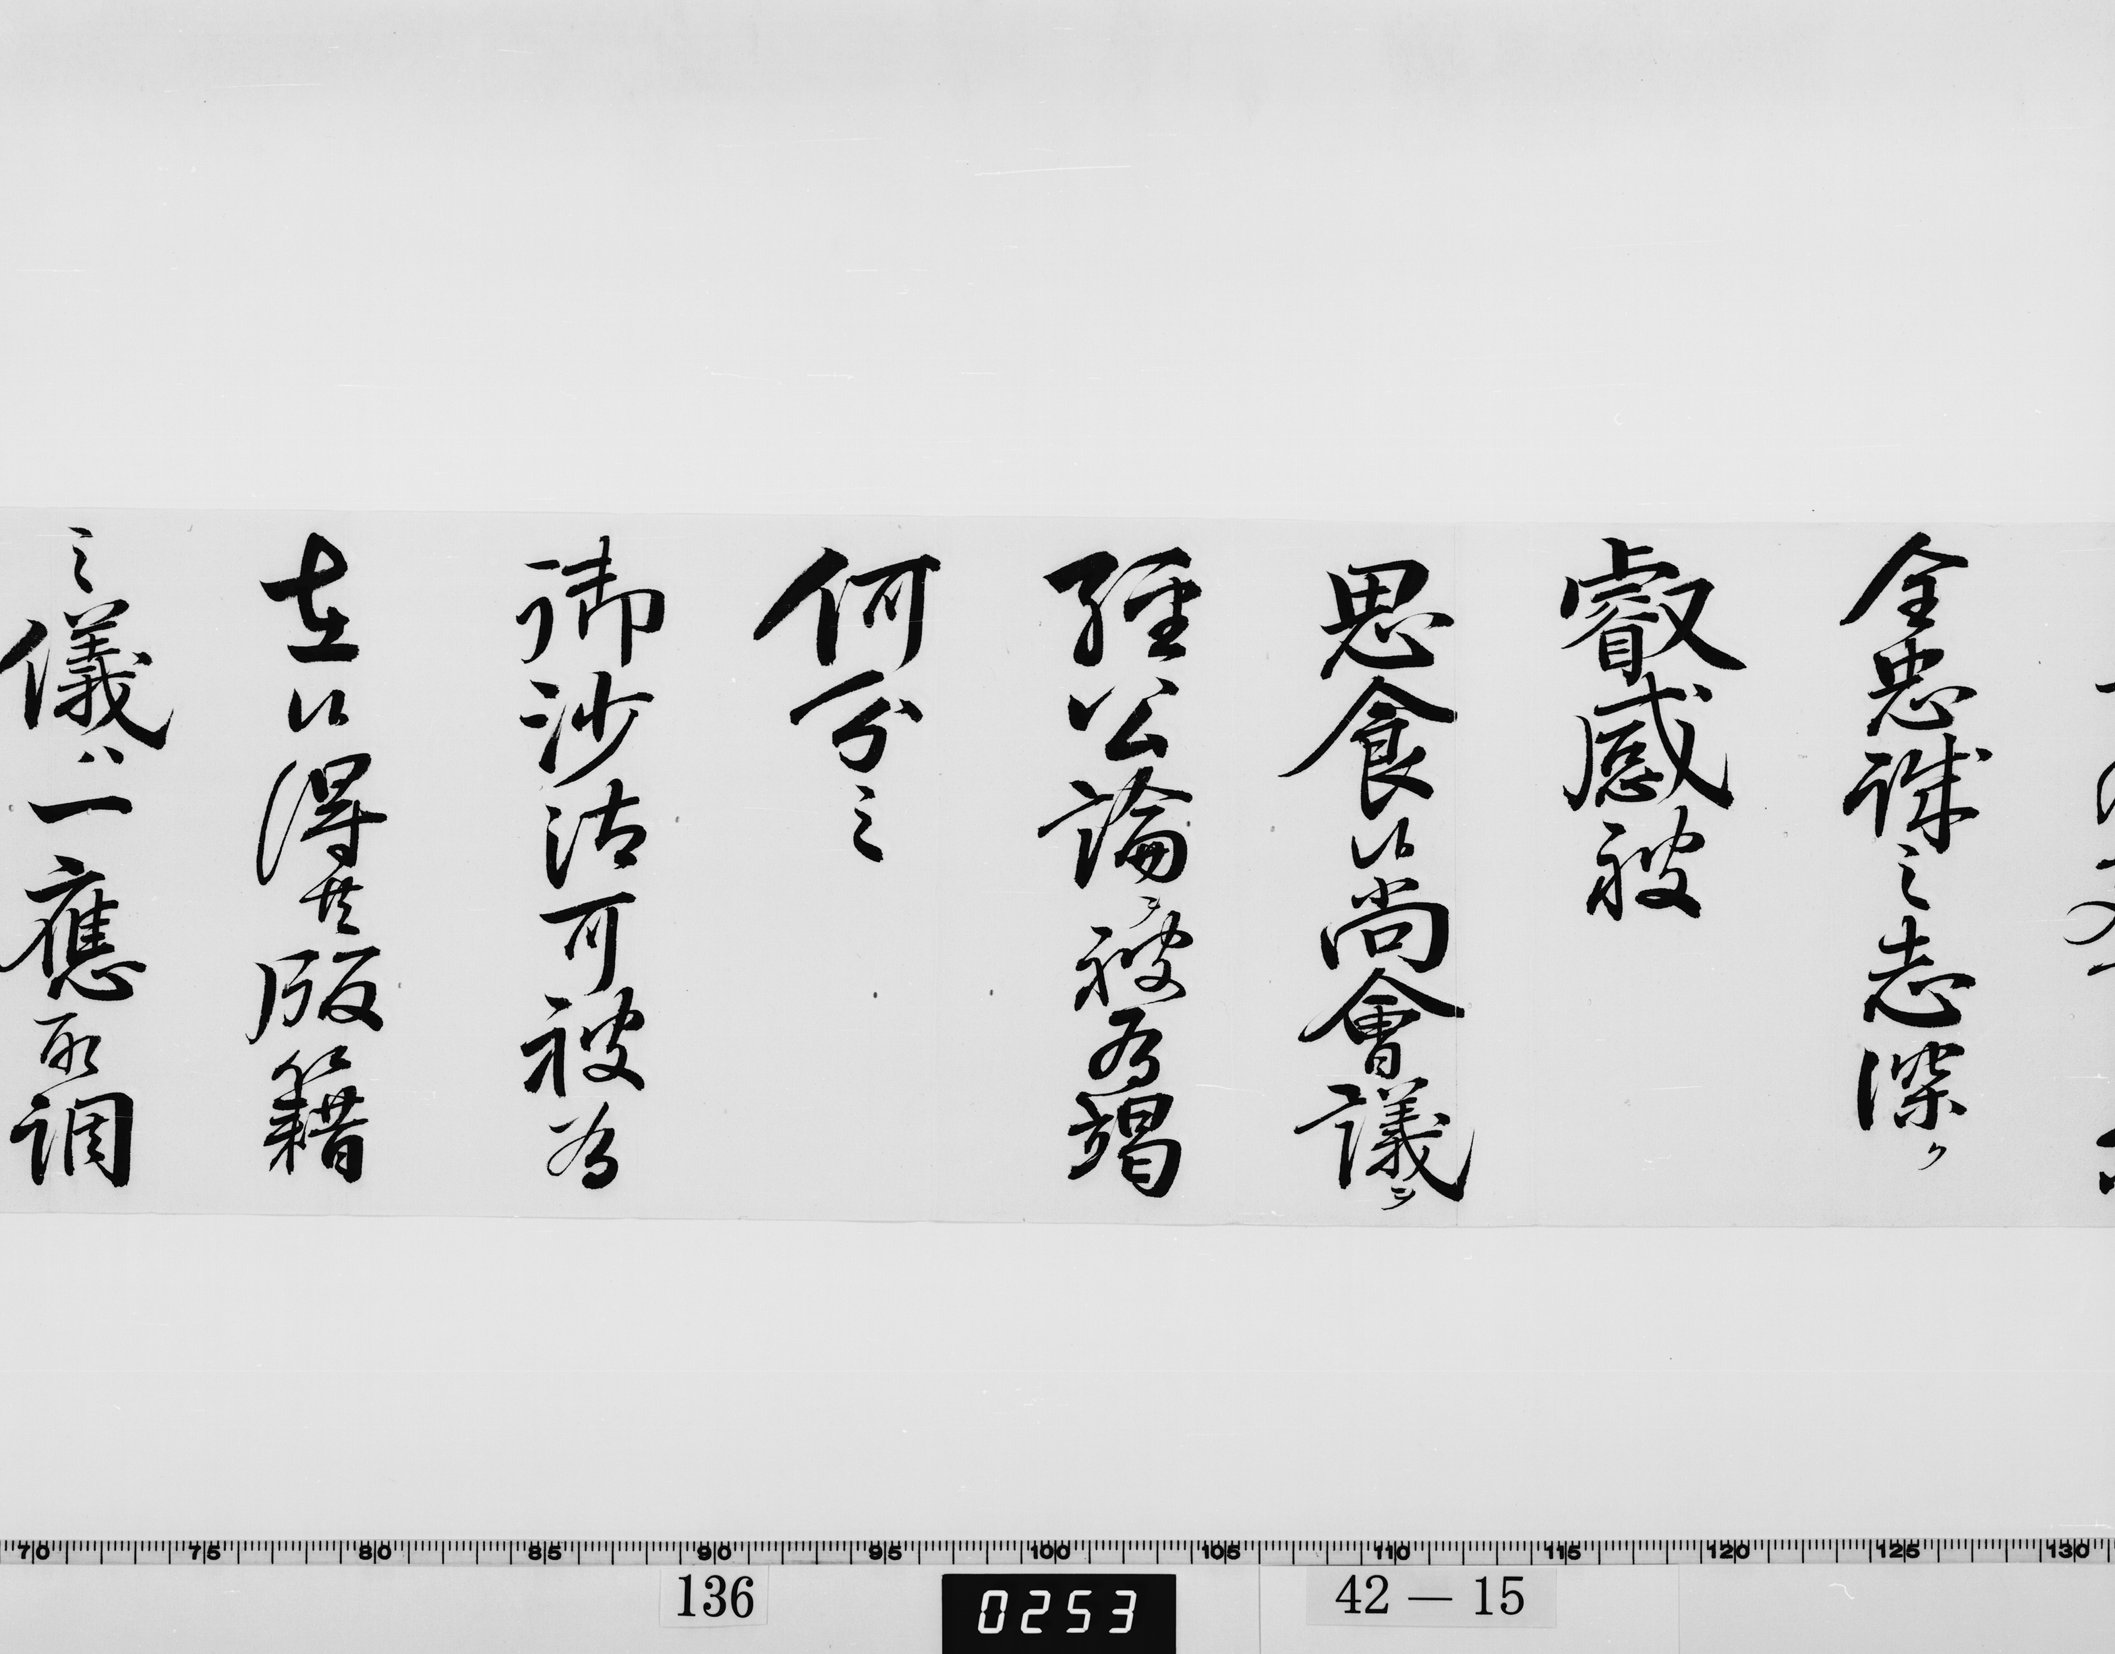 全忠誠之志深ク
叡感被
思食候尚會議ヲ
經公論ヲ被為竭
何分之
御沙汰可被為
在候得共版籍
之儀ハ一應取調
70 75 80 85 90 95 100 105 110 115 120 125 130
136 0253 42－15